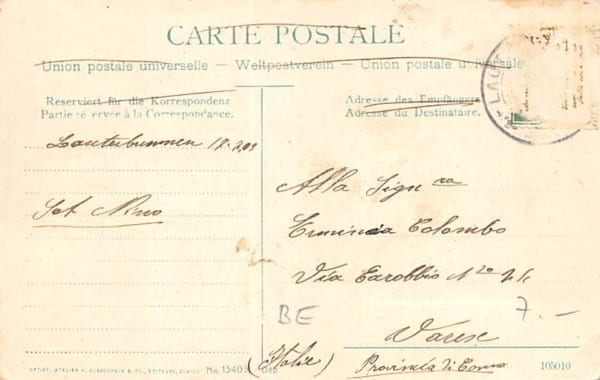 CARTE POSTALE
Union postale universelle – Weltpostverein – Union postale universale
Reserviert für die Korrespondenz
Partie réservée à la Correspondance.
Adresse des Empfängers
Adresse du Destinataire.
LAU
Lauterbrunnen 12.
Alla Sign ra
Erminia Colombo
Via Carobbio No
Varese
(Italie)
Provincia di Como
BE
7.–
No. 13403
Dep
105010